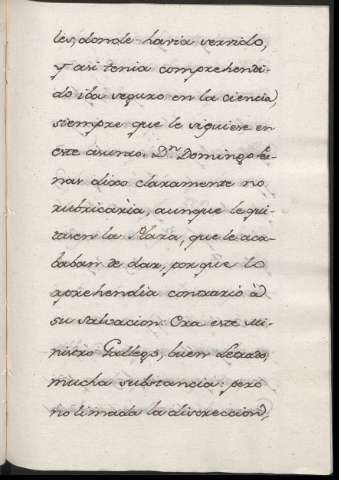 les, donde havia servido,
y asi tenia comprehendi-
do iba seguro en la ciencia,
siempre que le siguiese en
este asunto. Dn. Domingo
nas dixo claramente no
rubricaria, aunque le qui-
tasen la Plaza, que le aca-
baban de dar, porque lo
xprehendia contrario à
su salvacion: Era este Mi-
nistro Gallego, buen Letrado,
mucha substancia: pero
no limada la discreccion,